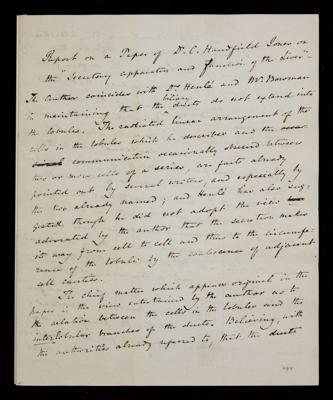 Report on a Paper of Dr. C. Handfield Jones on
the "Secretory apparatus and function of the Liver"
The author coincides with Drs Henlé and Mr. Bowman
in maintaining that the biliary ducts do not extend into
the lobules. The radiated linear arrangement of the
cells in the lobules which he describes and the
communication occasionally observed between
two or more cells of a series, are facts already
pointed out by several writers, and especially by
the two already named; and Henlé has also sug-
gested though he did not adopt the view
advocated by the author that the secretion makes
its way from cell to cell and thus to the circumfe-
rence of the lobule by the coalescence of adjacent
cell cavities.
The chief matter which appears original in the
paper is the view entertained by the author as to
the relation between the cells in the lobules and the
interlobular branches of the ducts. Believing, with
the authorities already referred to, that the ducts